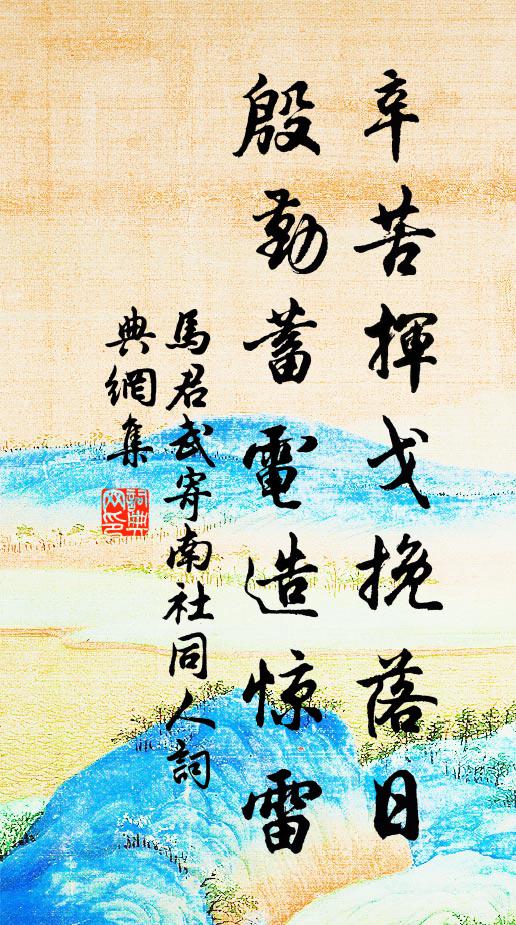 辛苦揮戈挽落日
殷勤蓄電造惊雷
馬君武寄南社同人詞
典網集
詞典網印